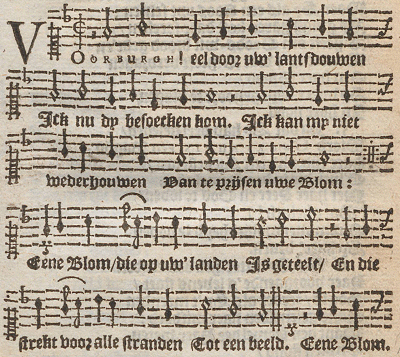 VOORBURGH! eel door uw' lantsdouwen
Ick nu dy besoecken kom. Ick kan my niet
wederhouwen Van te prijsen uwe Blom:
Eene Blom/die op uw' landen Is geteelt/ En die
strekt voor alle stranden Tot een beeld. Eene Blom.